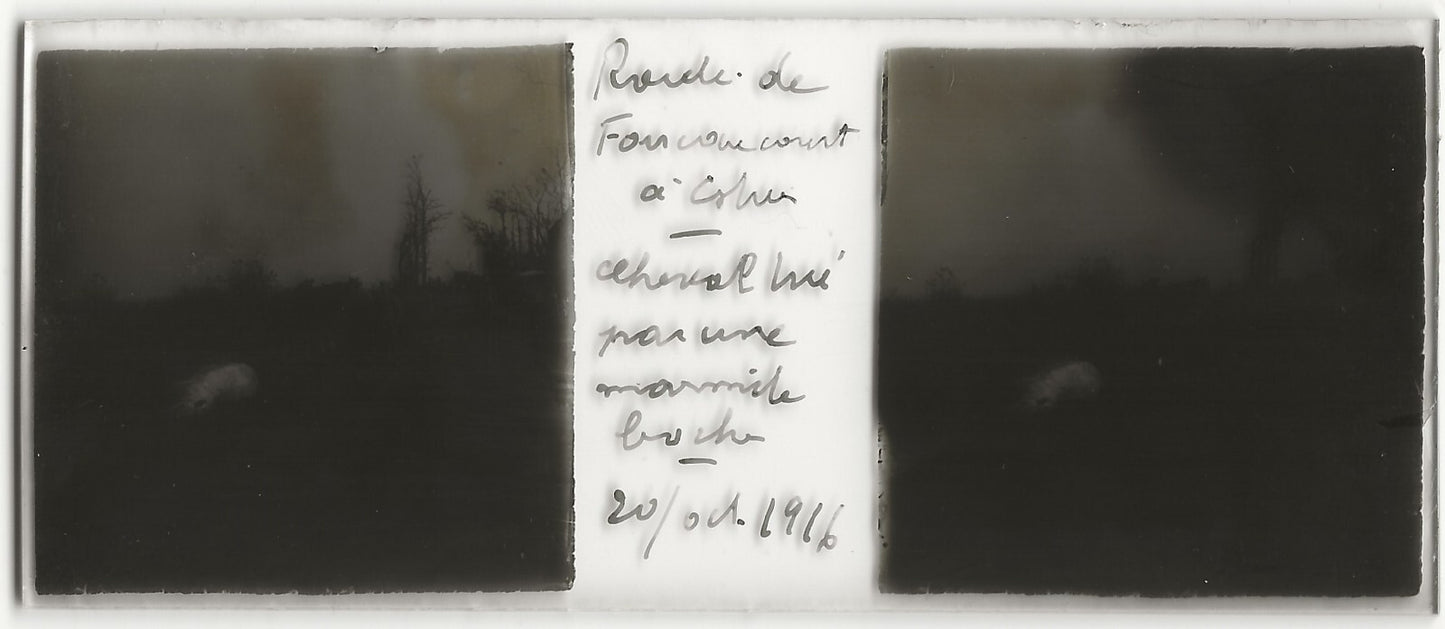 Route de
Foucaucourt
à
cheval tué
par une
marmite
boche
20/oct. 1916